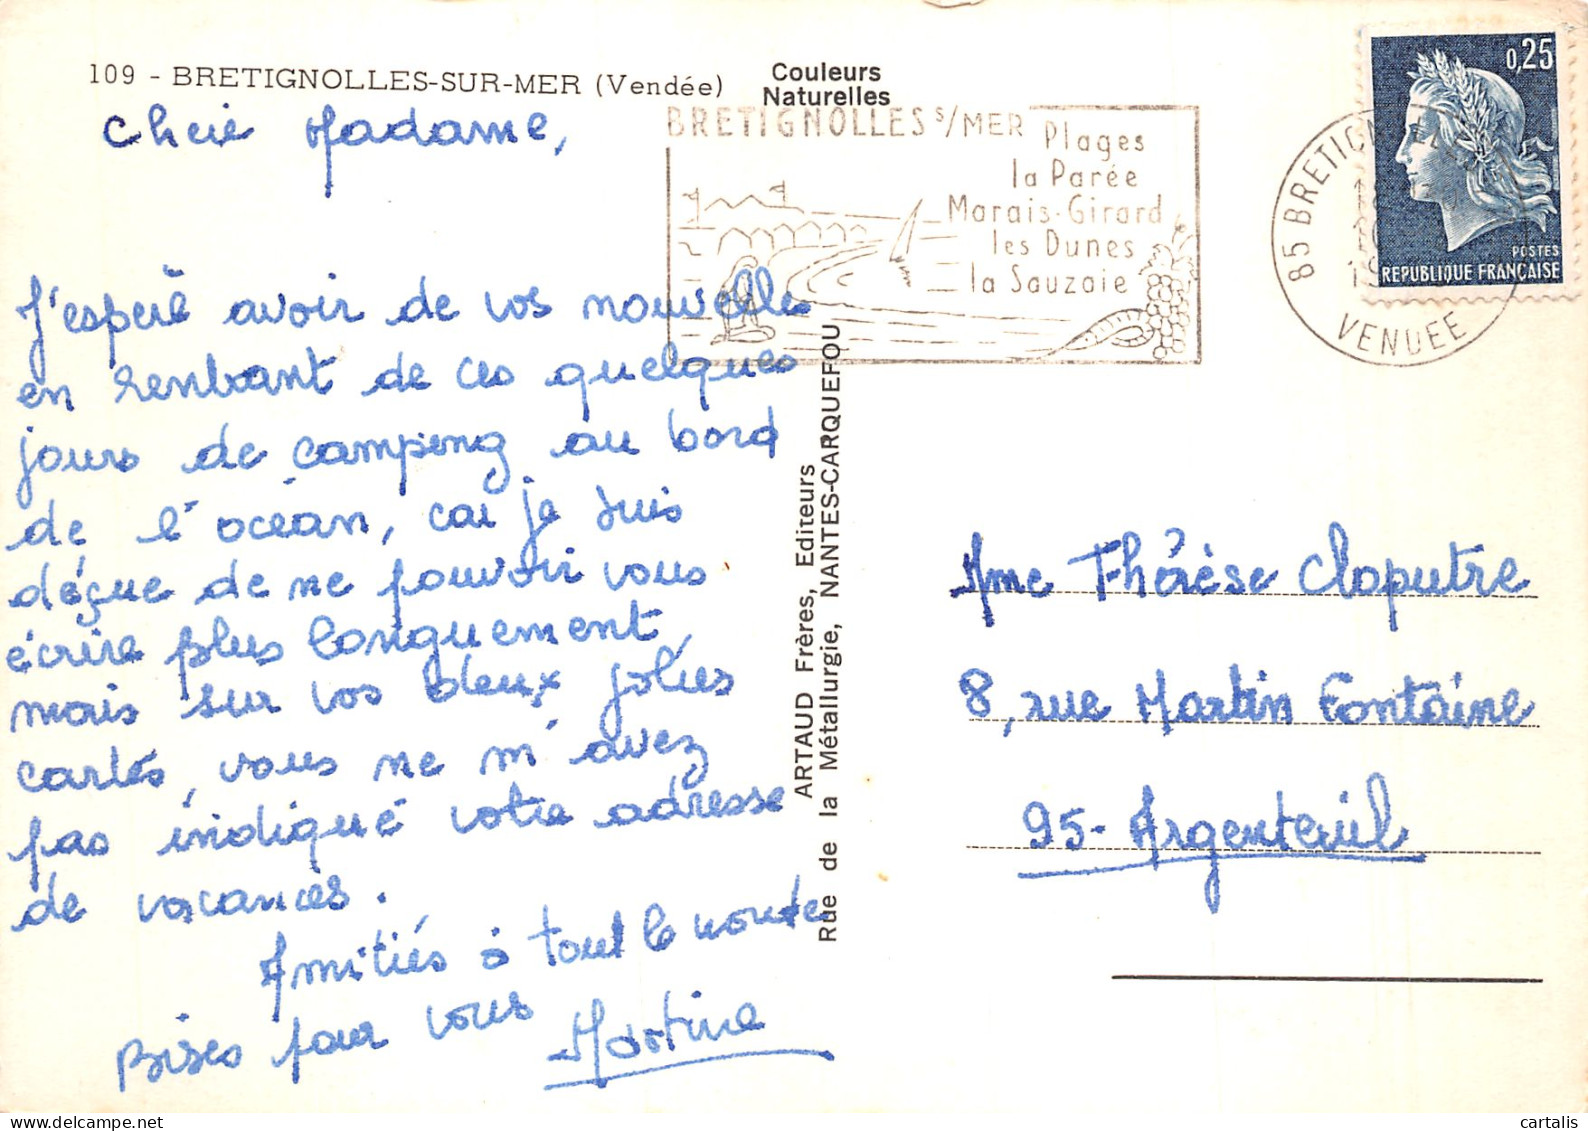 109 - BRETIGNOLLES-SUR-MER (Vendée)
Couleurs
Naturelles
Chère Madame,
BRETIGNOLLES S/MER
Plages
la Parée
Marais-Girard
les Dunes
la Sauzaie
0,25
POSTES
REPUBLIQUE FRANÇAISE
85 BRETIGN
VENDEE
J'espère avoir de vos nouvelles
en rentrant de ces quelques
jours de camping au bord
de l'océan, car je suis
déçue de ne pouvoir vous
écrire plus longuement,
mais sur vos deux jolies
cartes, vous ne m'avez
pas indiqué votre adresse
de vacances.
Amitiés à tout le monde
Bises pour vous
Martine
ARTAUD Frères, Editeurs
Rue de la Métallurgie, NANTES-CARQUEFOU
Mme Thérèse Claputre
8, rue Martin Fontaine
95 - Argenteuil
cartalis